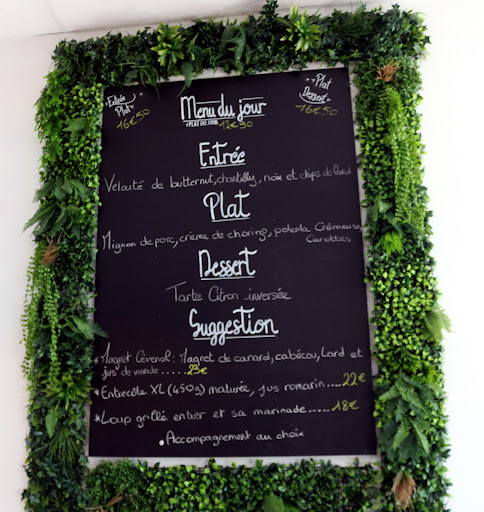 Entrée
Plat
16€50
Menu du jour
*PLAT DU JOUR 12€90
Plat
Dessert
16€50
Entrée
Velouté de butternut, chantilly, noix et chips de lard
Plat
Mignon de porc, crème de chorizo, polenta crémeuse,
Carottes
Dessert
Tarte Citron inversée
Suggestion
*Magret Cévenol: Magret de canard, cabécou, Lard et
jus de viande ..... 23€
*Entrecôte XL (450g) maturée, jus romarin .... 22€
*Loup grillé entier et sa marinade ..... 18€
.Accompagnement au choix